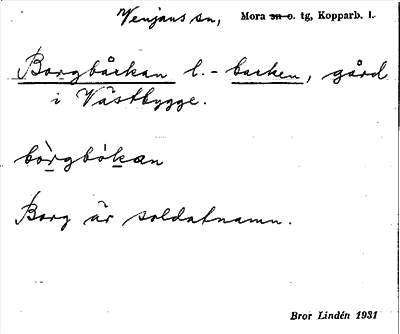 Venjans sn, Mora sn o. tg, Kopparb. l.
Borgbårkan l. -barken, gård
i Västbygge.
bòrgbókan
Borg är soldatnamn.
Bror Lindén 1931